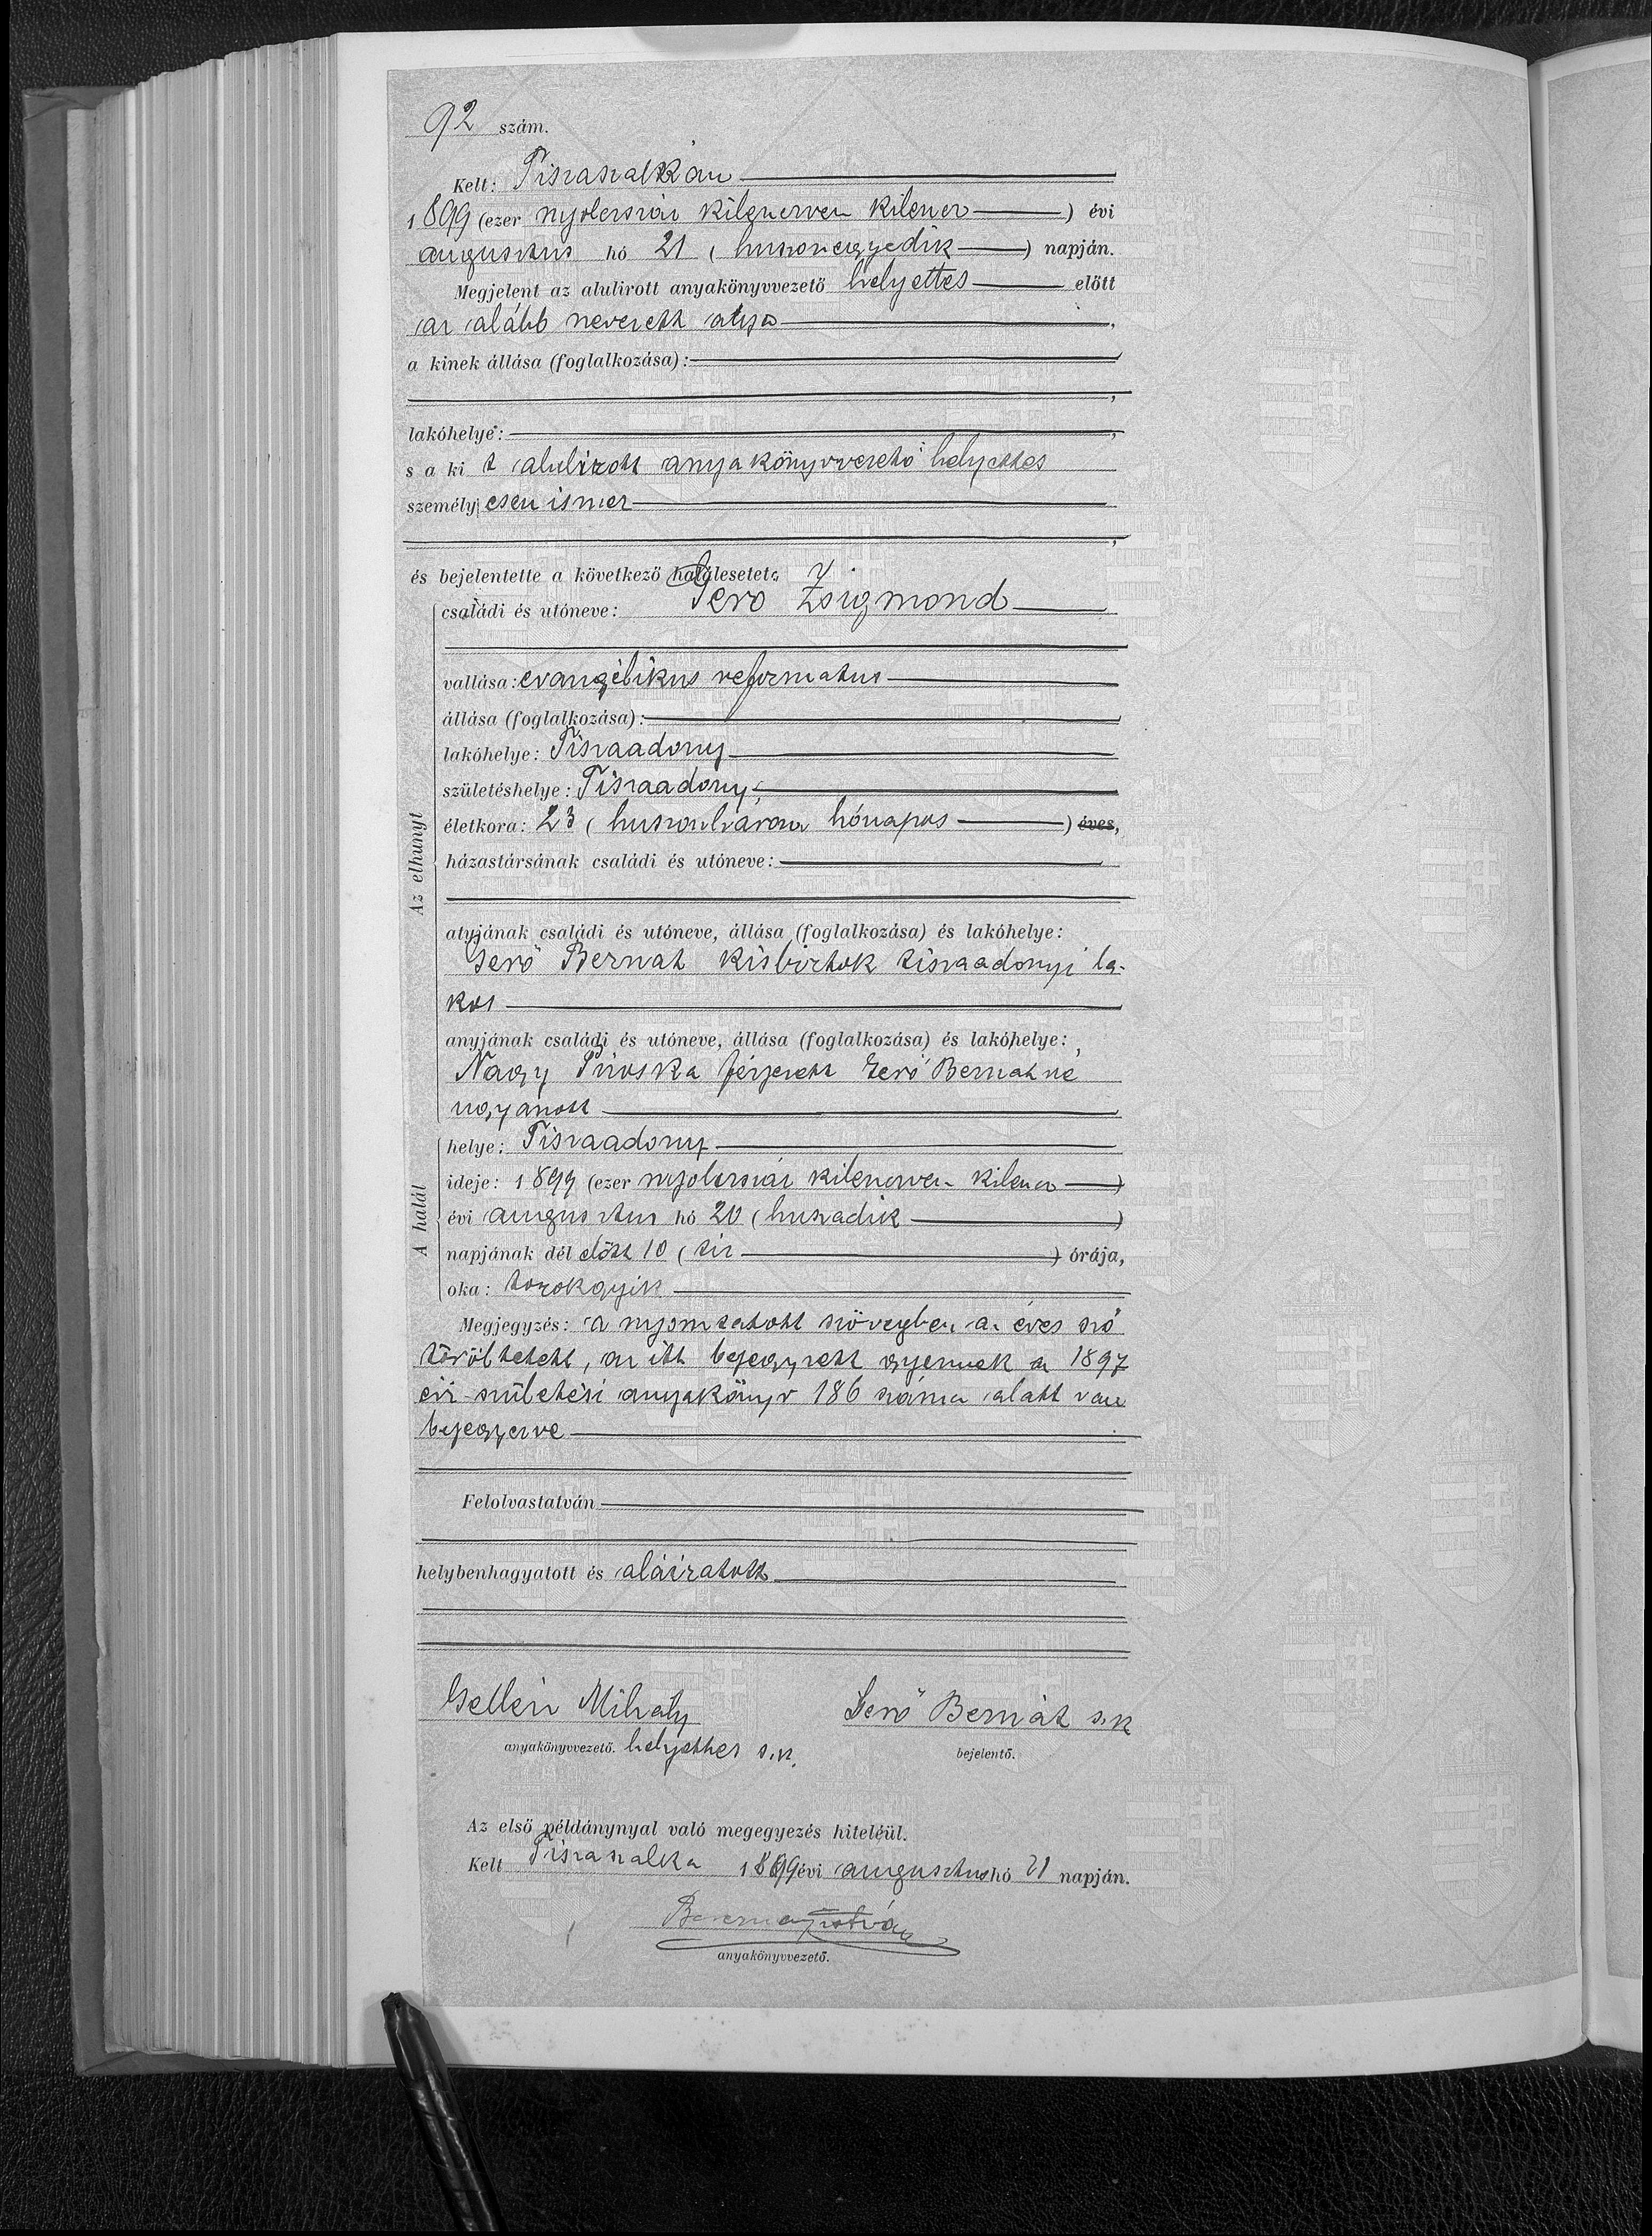 92 szám.
Kelt: Tiszaszalkán
1899 (ezer nyolczszáz kilenczven kilencz) évi
augusztus hó 21 (huszonegyedik) napján.
Megjelent az alulirott anyakönyvvezető helyettes előtt
az alább nevezett atya,
a kinek állása (foglalkozása):
,
lakóhelye: ,
s a ki t alulirott anyakönyvvezető helyettes
személyesen ismer
,
és bejelentette a következő halálesetet:
Az elhunyt
családi és utóneve: Serő Zsigmond
vallása: evangélikus reformatus
állása (foglalkozása):
lakóhelye: Tiszaadony
születéshelye: Tiszaadony
életkora: 23 (huszonhárom hónapos) éves,
házastársának családi és utóneve:
atyjának családi és utóneve, állása (foglalkozása) és lakóhelye:
Serő Bernát kisbirtok tiszaadonyi la-
kos
anyjának családi és utóneve, állása (foglalkozása) és lakóhelye:
Nagy Piroska férjezett Serő Bernátné
ugyanott
A halál
helye: Tiszaadony
ideje: 1899 (ezer nyolczszáz kilenczven kilencz)
évi augusztus hó 20 (huszadik)
napjának dél előtt 10 (tíz) órája,
oka: torokgyík
Megjegyzés: a nyomtatott szövegben az éves szó
töröltetett, az itt bejegyzett gyermek az 1897
évi születési anyakönyv 186 száma alatt van
bejegyezve
Felolvastatván
helybenhagyatott és aláiratott
Gellén Mihály Serő Bernát s.k
anyakönyvvezető. helyettes s.k. bejelentő.
Az első példánynyal való megegyezés hiteléül.
Kelt Tiszaszalka 1899 évi augusztus hó 21 napján.
István
anyakönyvvezető.